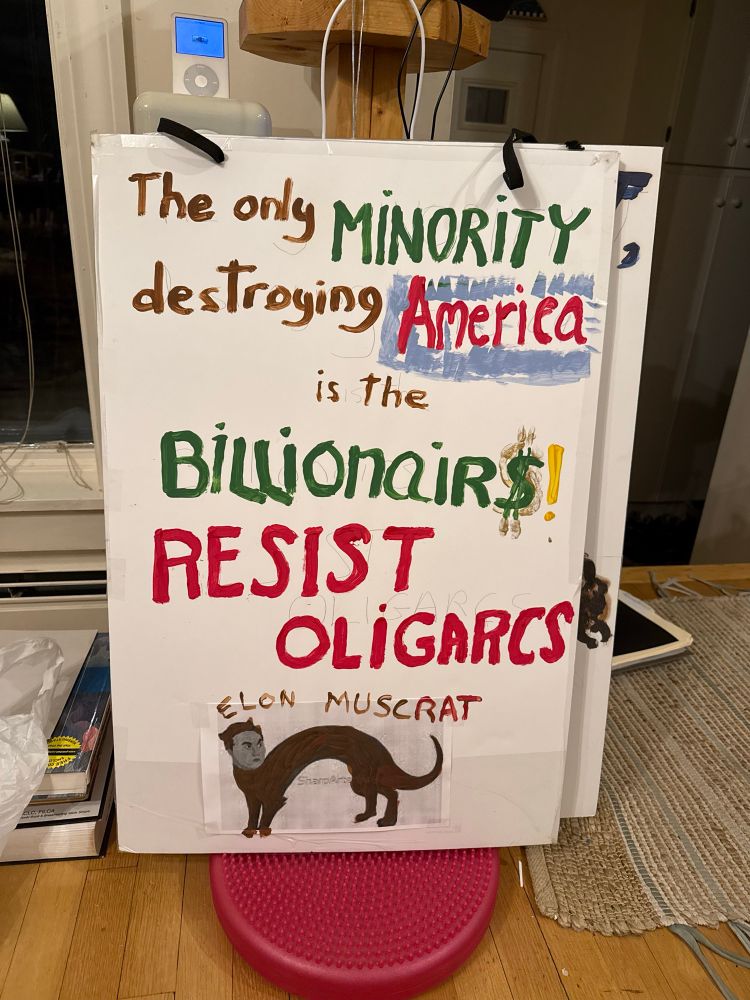 The only MINORITY
destroying America
is the
BillionaiR$!
RESIST
OLIGARCS
ELON MUSCRAT
SharpArts